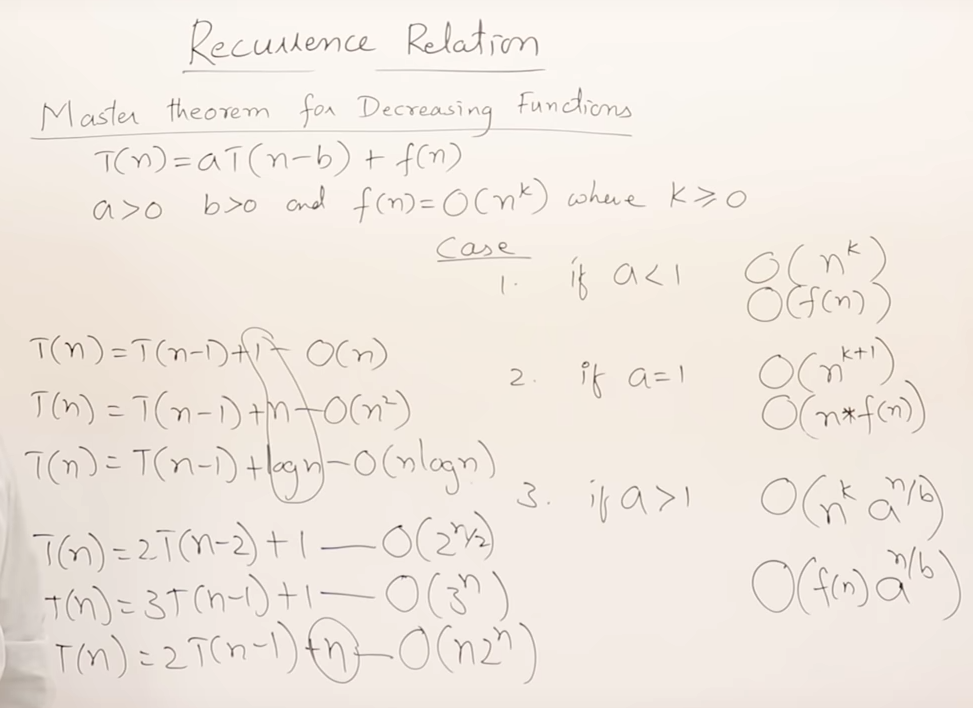 Recurrence Relation
Master theorem for Decreasing Functions
T(n)=aT(n-b)+f(n)
a>0 b>0 and f(n)=O(n^k) where k≥0
Case
1. if a<1 O(n^k)
O(f(n))
2. if a=1 O(n^{k+1})
O(n*f(n))
3. if a>1 O(n^k a^{n/b})
O(f(n) a^{n/b})
T(n)=T(n-1)+1 - O(n)
T(n)=T(n-1)+n-O(n²)
T(n)=T(n-1)+logn-O(nlogn)
T(n)=2T(n-2)+1—O(2^{n/2})
T(n)=3T(n-1)+1—O(3^n)
T(n)=2T(n-1)+n-O(n2^n)